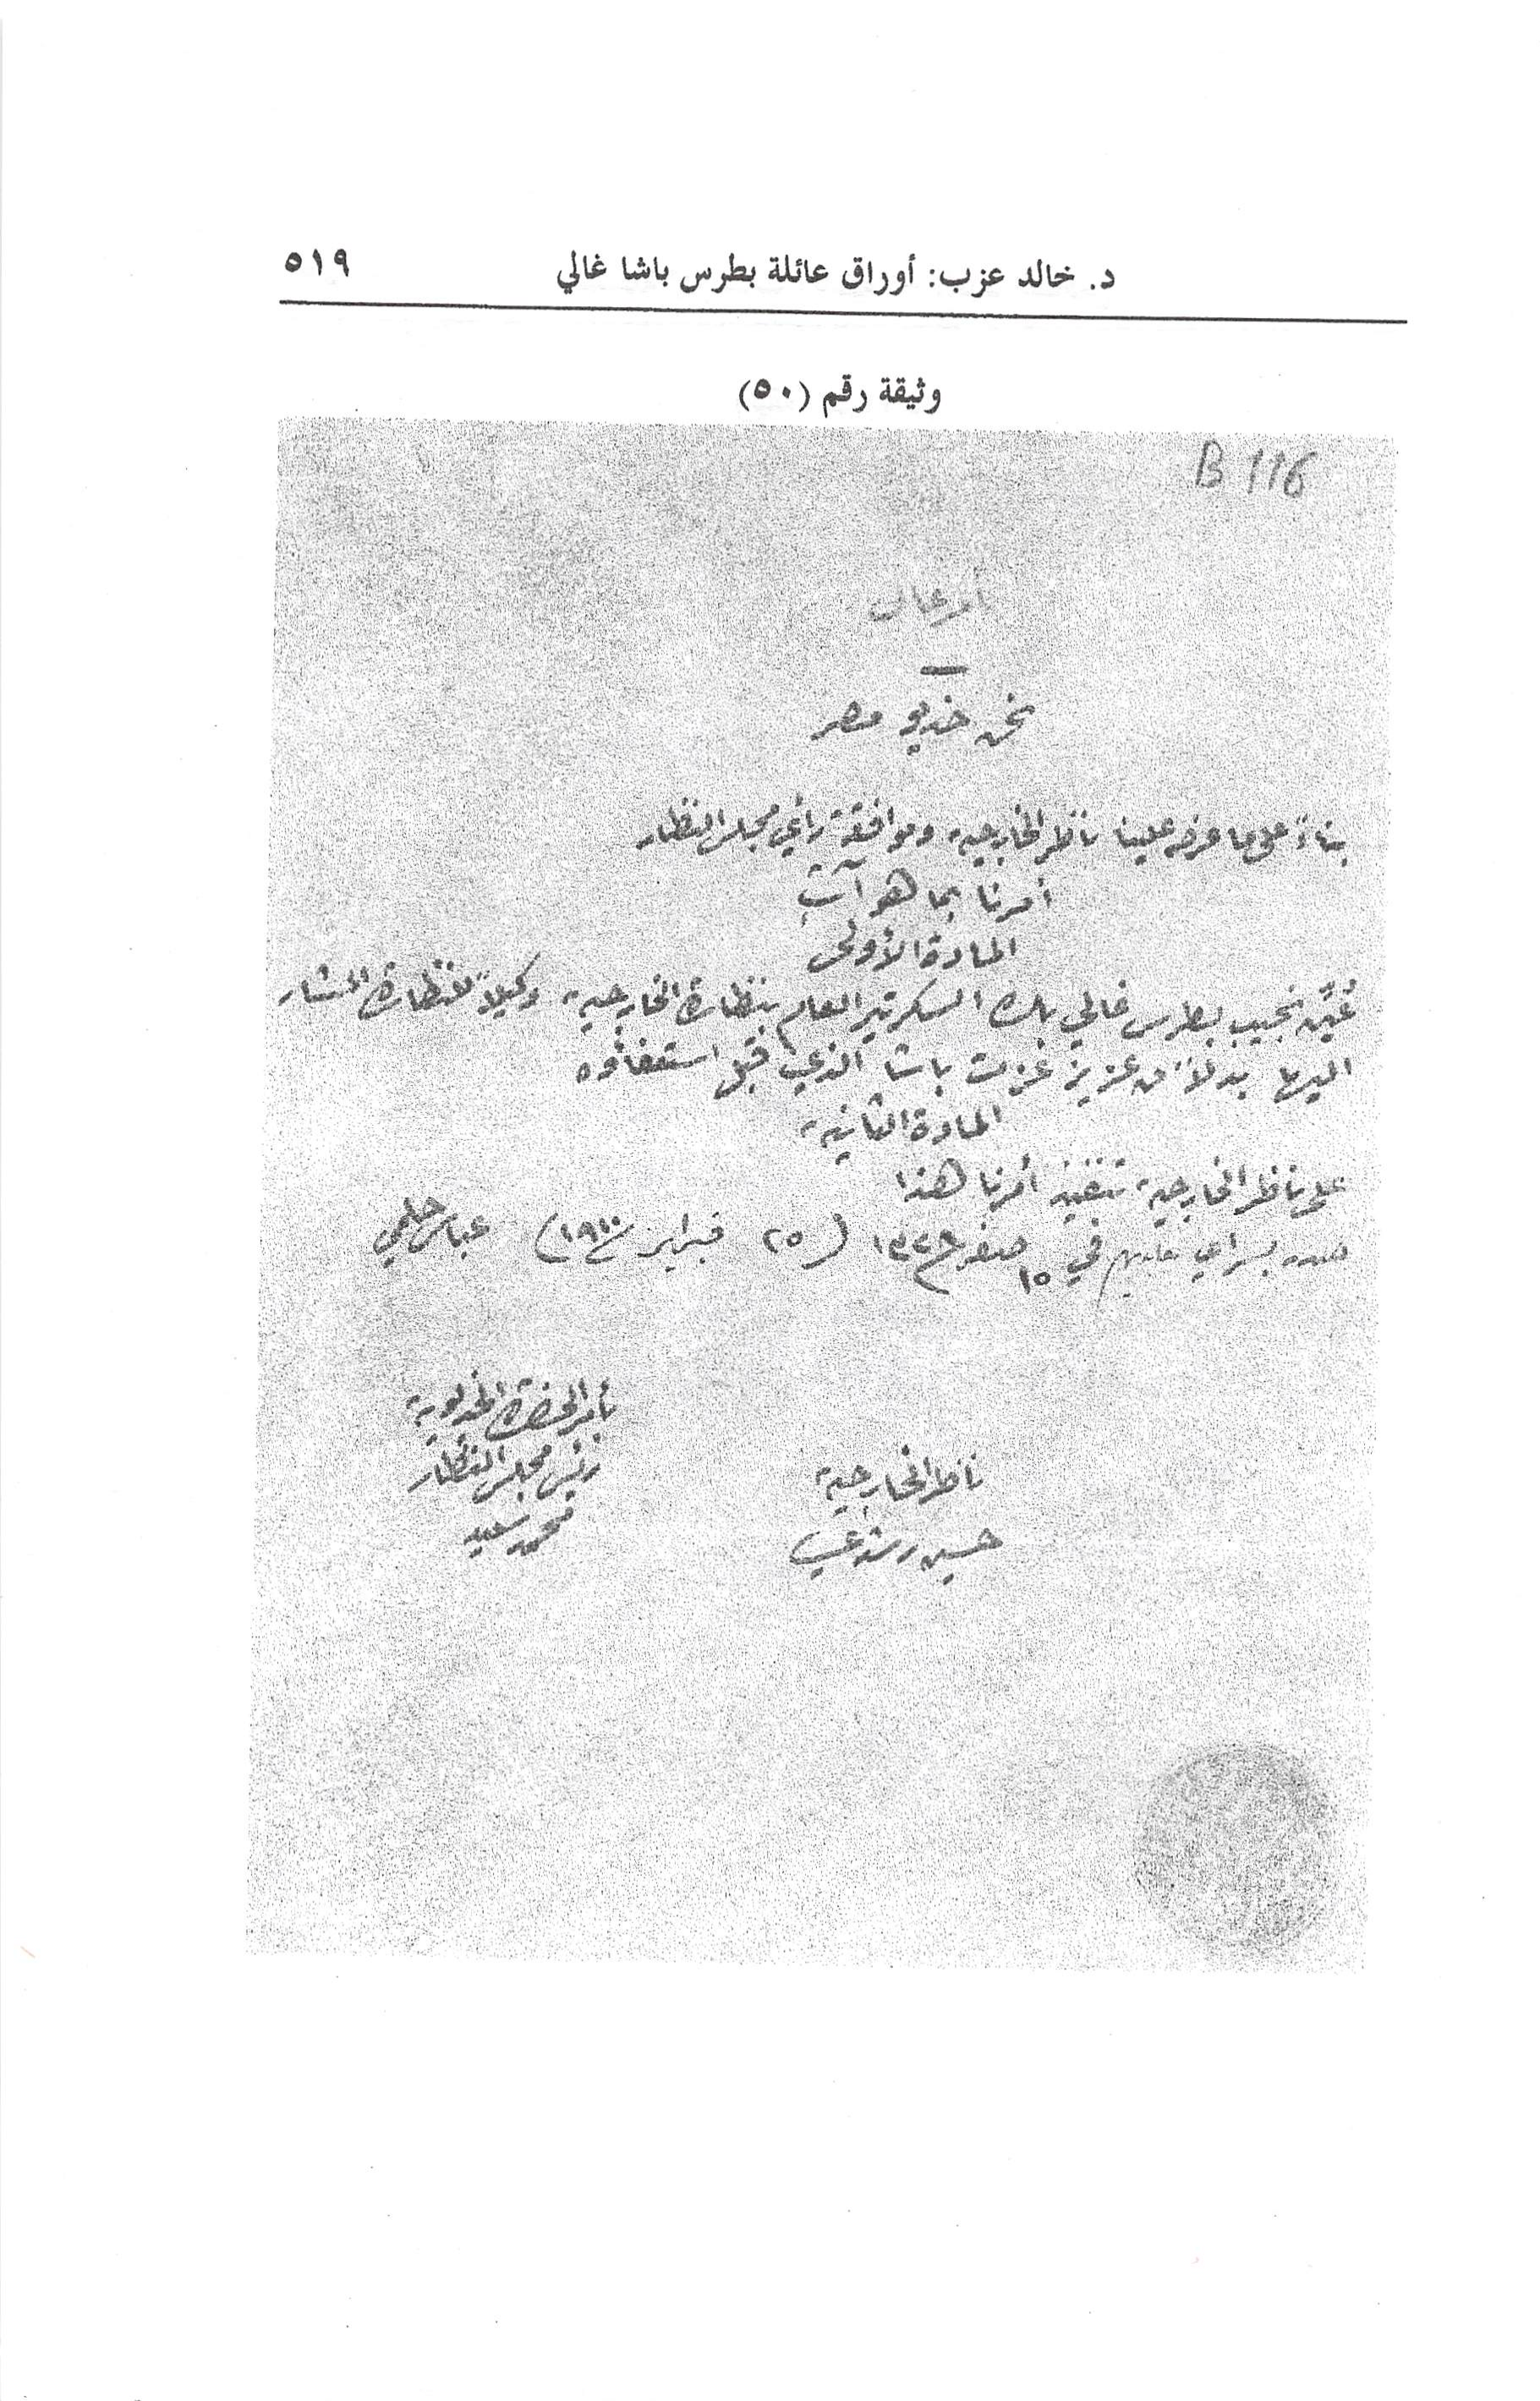 د. خالد عزب: أوراق عائلة بطرس باشا غالي ٥١٩
وثيقة رقم (٥٠)
B 116
أمر عال
نحن خديو مصر
بناءً على ما عرضه علينا ناظر الخارجية وموافقة رأي مجلس النظار
أمرنا بما هو آت
المادة الأولى
عُيِّن نجيب بطرس غالي بك السكرتير العام بنظارة الخارجية وكيلاً للنظارة المشار
اليها بدلاً من عزيز عزت باشا الذي قبل استعفاؤه
المادة الثانية
على ناظر الخارجية تنفيذ أمرنا هذا
صدر بسراي عابدين في ١٥ صفر (٢٥ فبراير ١٩١٠) عباس حلمي
بأمر الحضرة الخديوية
رئيس مجلس النظار
محمد سعيد
ناظر الخارجية
حسين رشدي